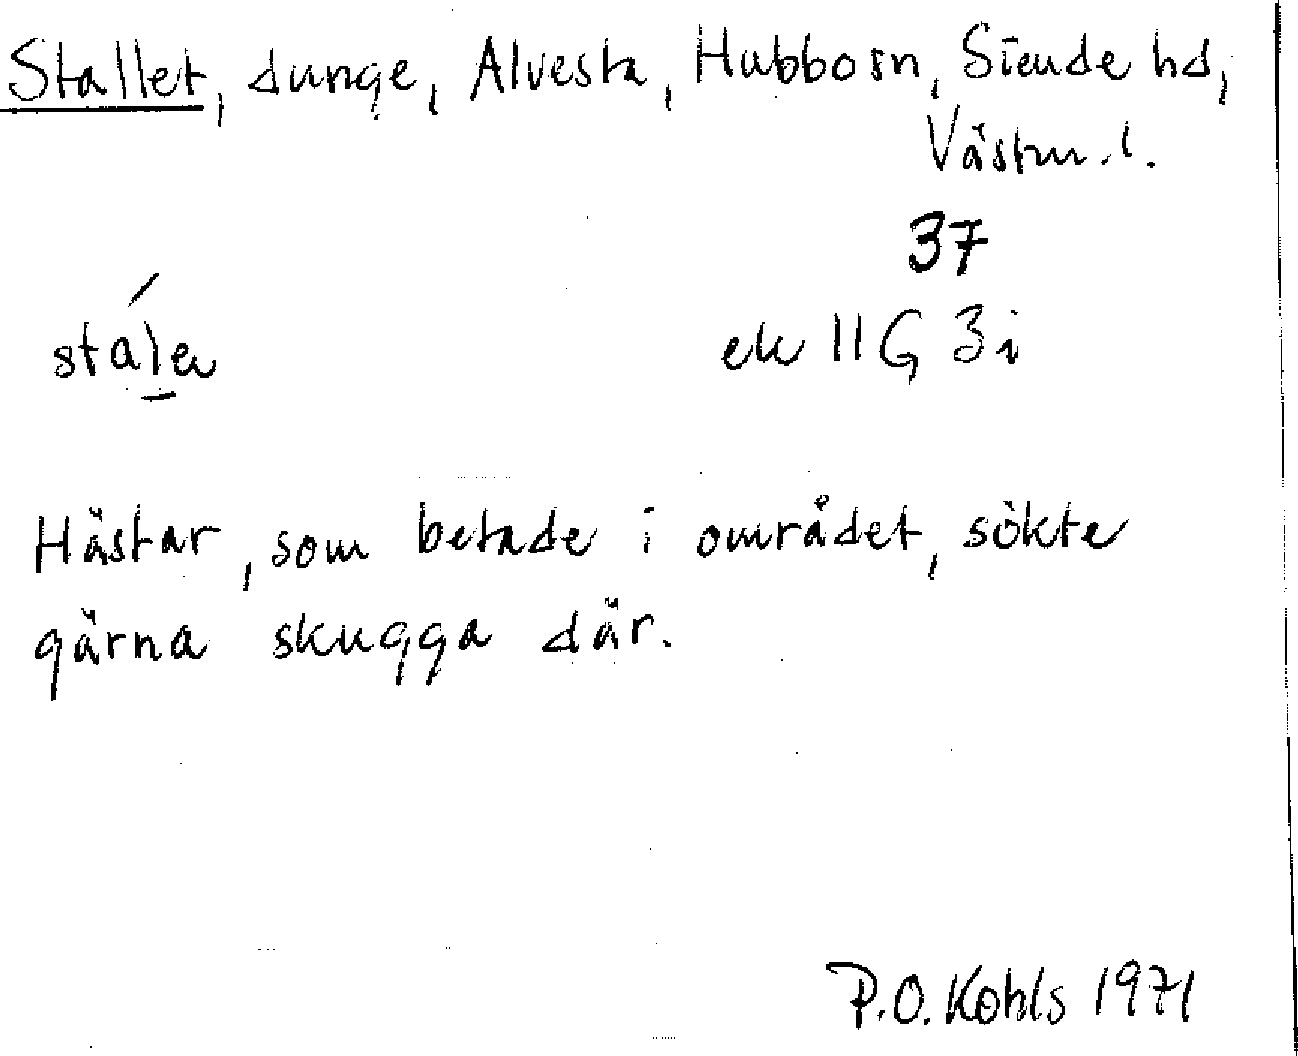 Stallet, dunge, Alvesta, Hubbo sn, Siende hd,
Västm. l.
37
ek 11G 3i
Hästar, som betade i området, sökte
gärna skugga där.
P.O. Kohls 1971